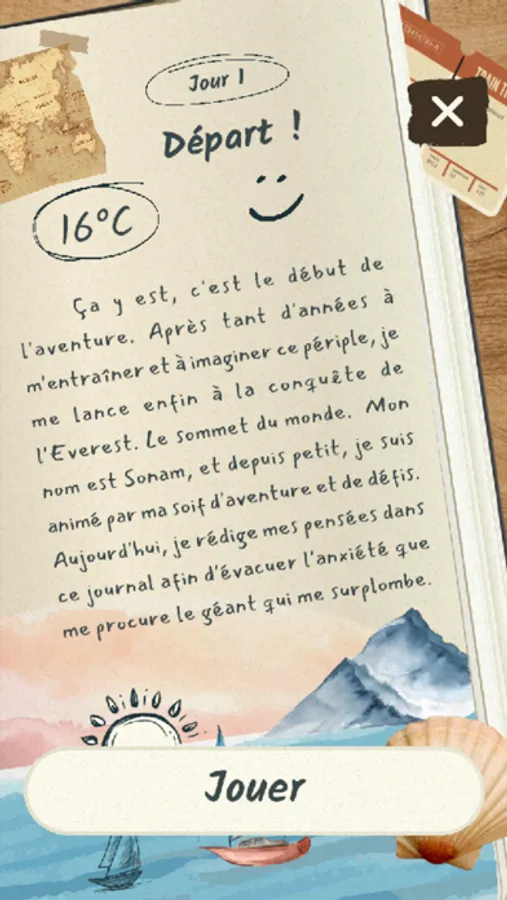 Jour 1
Départ !
16°C
Ça y est, c'est le début de
l'aventure. Après tant d'années à
m'entraîner et à imaginer ce périple, je
me lance enfin à la conquête de
l'Everest. Le sommet du monde. Mon
nom est Sonam, et depuis petit, je suis
animé par ma soif d'aventure et de défis.
Aujourd'hui, je rédige mes pensées dans
ce journal afin d'évacuer l'anxiété que
me procure le géant qui me surplombe.
Jouer